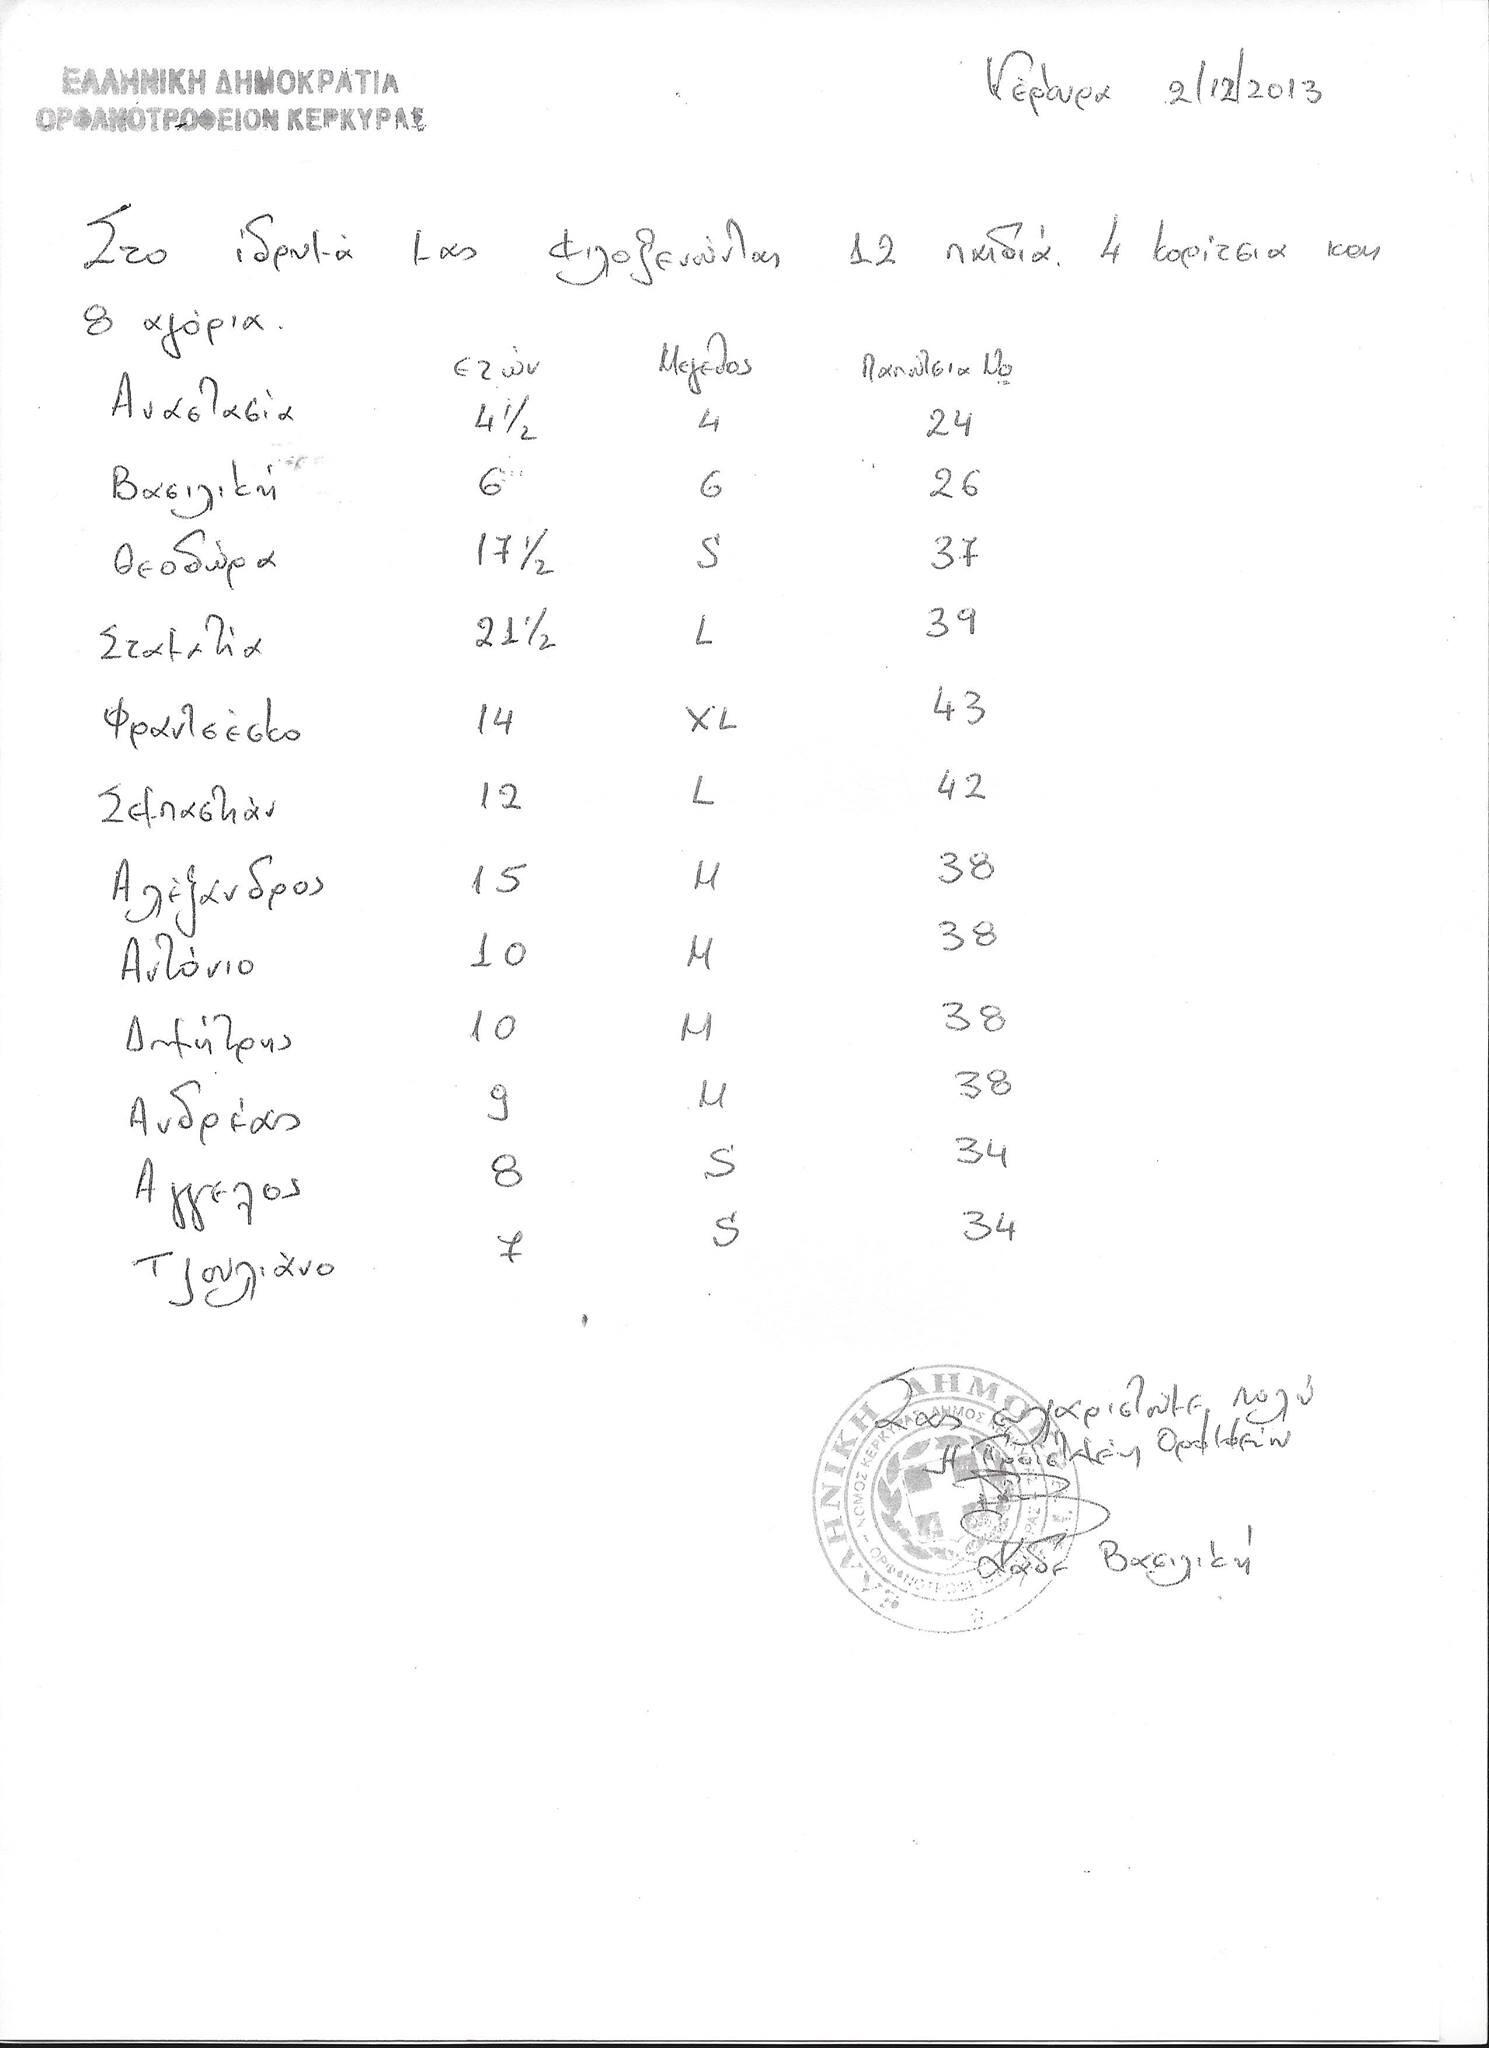 ΕΛΛΗΝΙΚΗ ΔΗΜΟΚΡΑΤΙΑ
ΟΡΦΑΝΟΤΡΟΦΕΙΟΝ ΚΕΡΚΥΡΑΣ
Κέρκυρα 2/12/2013
Στο ίδρυμά μας φιλοξενούνται 12 παιδιά. 4 κορίτσια και
8 αγόρια.
ετών Μέγεθος Παπούτσια Νο
Αναστασία 4 1/2 4 24
Βασιλική 6 6 26
Θεοδώρα 17 1/2 S 37
Σταματία 21 1/2 L 39
Φραντσέσκο 14 XL 43
Σεμπαστιάν 12 L 42
Αλέξανδρος 15 M 38
Αντόνιο 10 M 38
Δημήτρης 10 M 38
Ανδρέας 9 M 38
Αγγελος 8 S 34
Τζουλιάνο 7 S 34
Σας ευχαριστούμε πολύ
Η Προϊσταμένη Ορφ/φείου
Βασιλική
ΕΛΛΗΝΙΚΗ ΔΗΜΟΚΡ
ΝΟΜΟΣ ΚΕΡΚΥΡΑΣ ΔΗΜΟΣ ΚΕΡΚΥΡ
ΟΡΦΑΝΟΤΡΟΦΕΙΟ